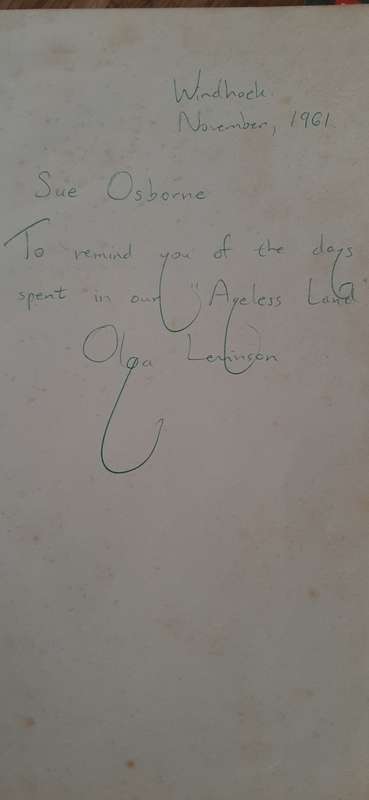 Windhoek.
November, 1961
Sue Osborne
To remind you of the days
spent in our "Ageless Land"
Olga Levinson